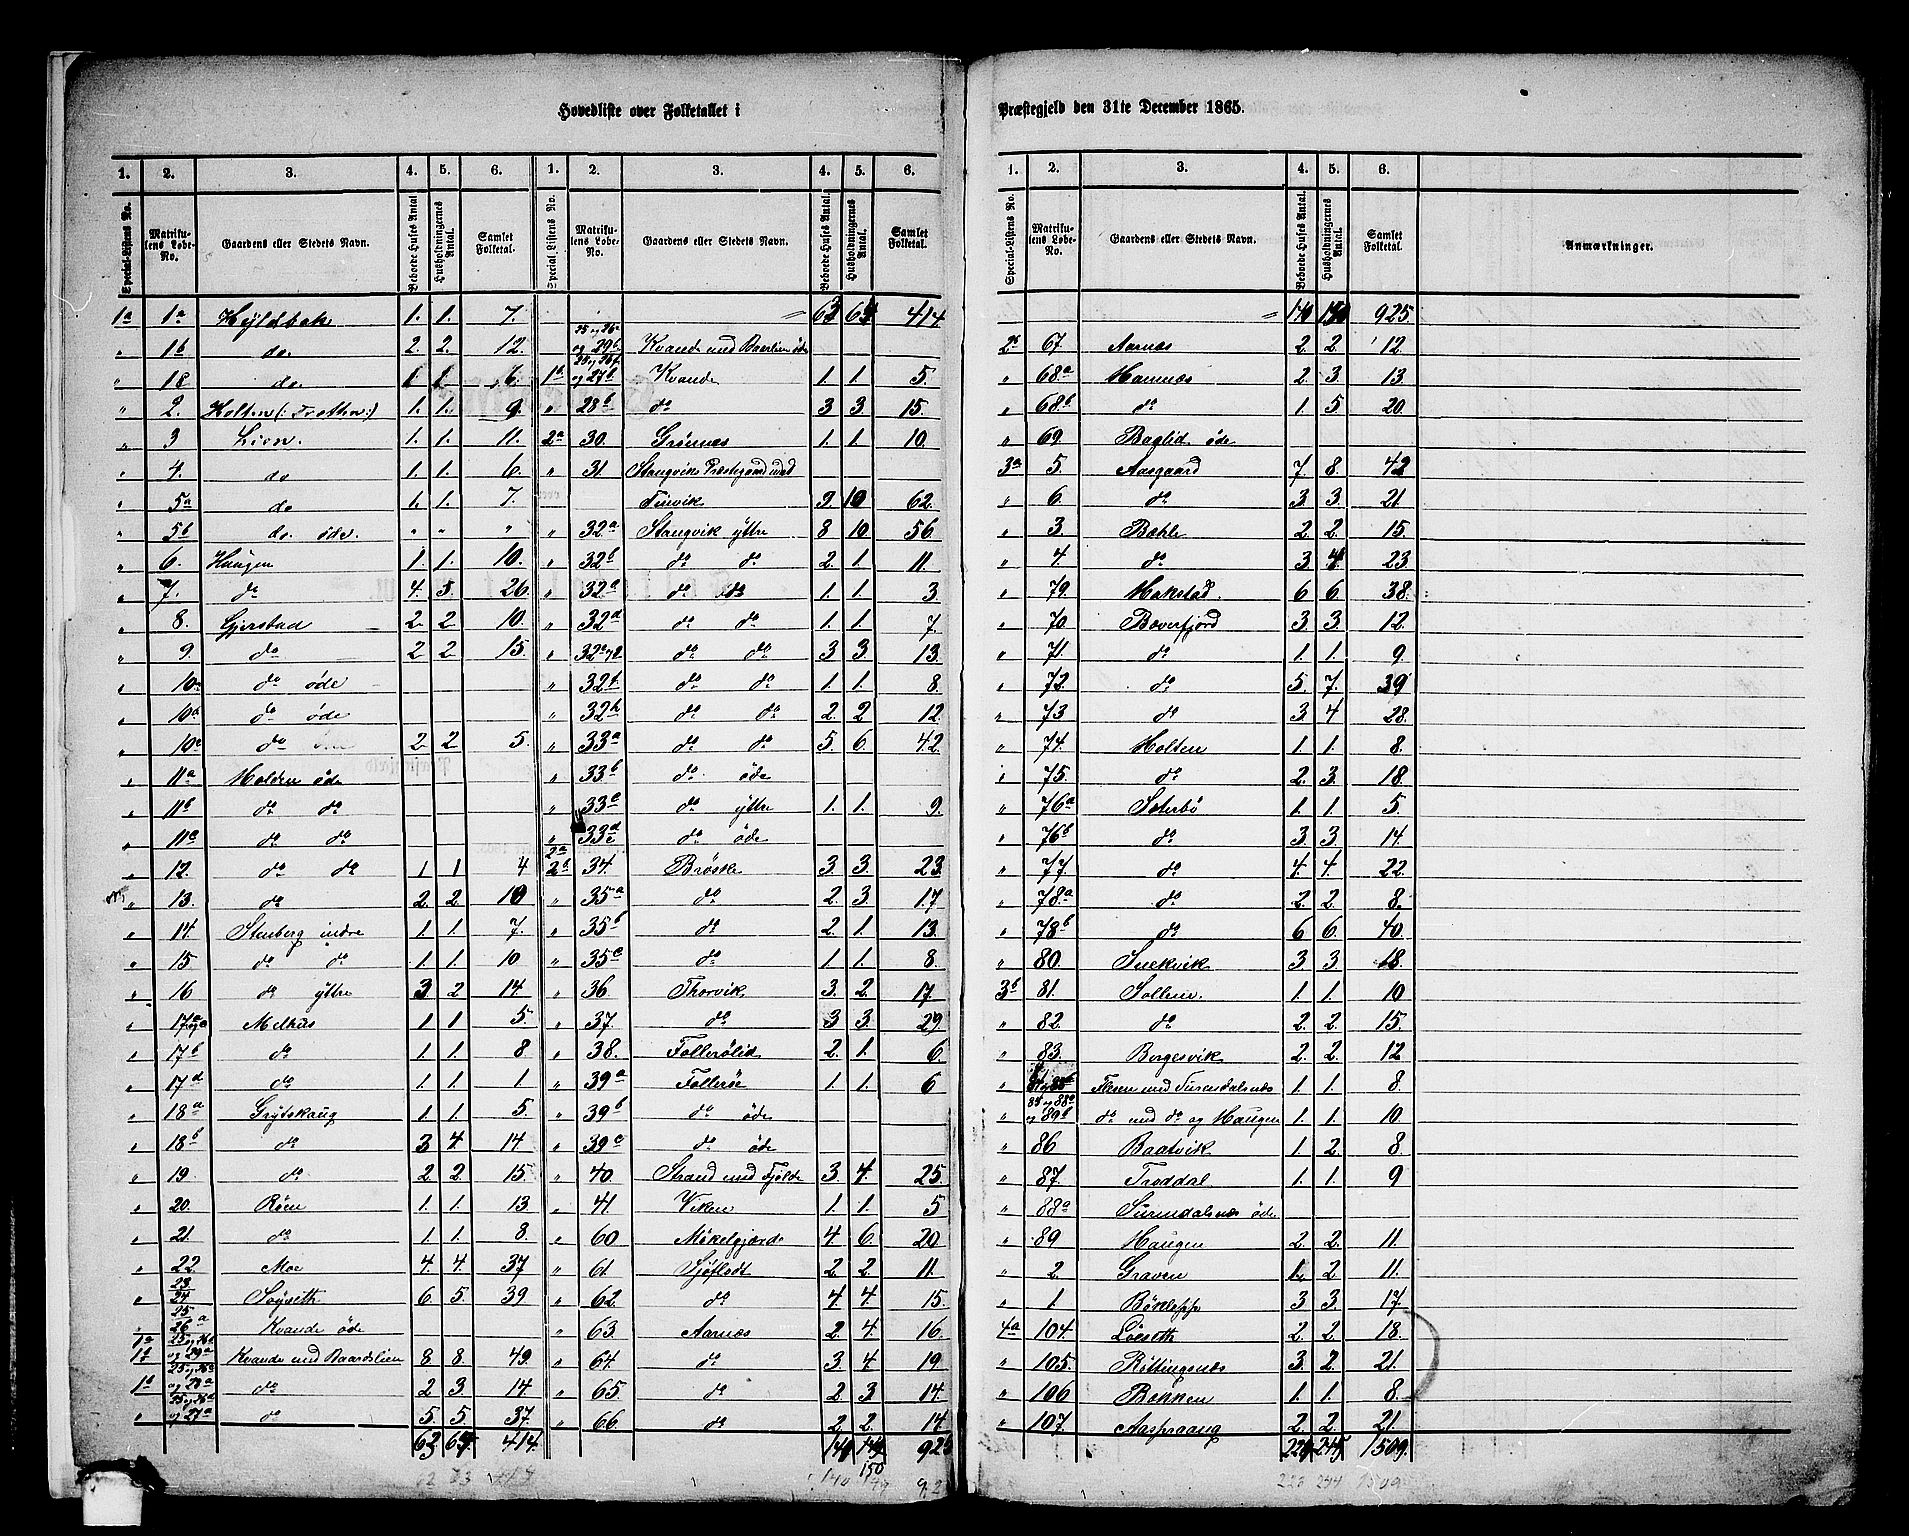 Hovedliste over Folketallet i
1. 2. 3. 4. 5. 6. 1. 2. 3. 4. 5. 6.
Special-Listens No. Matrikulens Løbe-No. Gaardens eller Stedets Navn. Beboede Huses Antal Husholdningernes Antal. Samlet Folketal. Special Listens No. Matrikulens Løbe-No. Gaardens eller Stedets Navn. Beboede Huses Antal. Husholdningernes Antal Samlet Folketal.
1a 1a Hyldbak 1. 1. 7.
" 1b do. 2. 2. 12.
" 18 do. 1. 1. 6.
" 2. Holten (: Trotten:) 1. 1. 9.
" 3 Lien. 1. 1. 11.
" 4. do 1. 1. 6.
" 5a do 1. 1. 7.
" 5b do. öde. " " "
" 6. Haugen 1. 1. 10.
" 7. do 4. 5. 26.
" 8. Gjerstad 2. 2. 10.
" 9. do 2 2. 15.
" 10a do öde
" 10b do öde
" 10c do 2. 2. 5.
" 11a Holden öde
" 11b do do
" 11c do do
" 12. do do 1 1 4
" 13. do 2. 2. 10
" 14. Stenberg indre 1. 1 7.
" 15 do do 1. 1. 10
" 16 do ÿttre 3 2 14.
" Melhus 1. 1 5.
" 17b do 1. 1. 8
" 17d do 1. 1. 1
" 18a Grÿtskaug 1. 1. 5.
" 18b do 3 4. 14
" 19 do 2 2. 15.
" 20. Röen 1. 1. 13.
" 21. do 1. 1 8.
" 22. Moe 4. 4. 37
" 23. 24 Söÿseth 6. 5. 39
Kvande öde
Kvande med Baardslien 8 8. 49.
do 2 3. 14
" do 5. 5. 37.
63 414.
414
Kvande med Baarlien öde
1b Kvande 1. 1. 5.
" 28b do 3 3. 15.
2a 30. Grönnæs 1. 1. 10
" 31. Stangvik Præstegaard med
Tinvik 9. 10 62.
" 32a Stangvik ÿttre 8 10 56.
" 32b do do 2. 1. 11.
" do do 1. 1. 3
" 32d do do 1. 1. 7.
" do do 3 3. 13.
" do do 1. 1. 8.
" 32h do do 2. 2 12.
" 33a do do 5. 6. 42.
" 33b do öde
" 33c do ÿttre 1. 1. 9.
" 33d do öde
2a 2b 34. Bröske 3. 3. 23
" 35a do 2. 3. 17
" 35b do 2 1. 13.
" 35c do 1. 1. 8.
" 36 Thorvik 3. 2. 17.
" 37. do 3 3. 29.
" 38. Follerölid 2. 1. 6.
" 39a Folleröe 1. 1. 6
" 39b do öde
" 39c do öde
" 40 Strand med Fjelde 3 4. 25.
" 41. Viken 1. 1. 5
" 60 Mökelgjærde 4 6. 20
" 61. Sjöflodt 2. 2. 11.
" 62. do 4. 4. 15.
" 63. Aarnæs 2. 4. 16.
" 64. do 3. 4 19
" 65 do 2 3 14.
" 66. do 2 2. 14
150
140 149
Præstegjeld den 31te December 1865.
1. 2. 3. 4. 5. 6.
Special-Listens No. Matrikulens Løbe-No. Gaardens eller Stedets Navn. Beboede Huses Antal. Husholdningernes Antal. Samlet Folketal. Anmærkninger.
925.
2b 67. Aarnæs 2. 2. 12.
" 68a Hamnæs 2. 3. 13.
" 68b do 1. 5 20.
" 69. Baglid öde
3a 5. Aasgaard 7. 8. 42
" 6. do 3 3. 21.
" 3. Bæhle 2 2. 15.
" 4. do 3 4 23.
" 79. Hakstad. 6 6. 38.
" 70 Bæverfjord 3. 3. 12.
" 71. do 1. 1. 9.
" 72. do 5. 7. 39
" 73 do 3 4 28.
" 74. Holten 1. 1. 8.
" 75. do 2. 3. 18.
" 76a Sæterbö 1. 1. 5.
" 76b do 3. 3. 14.
" 77. do 4. 4. 22.
" 78a do 2. 2. 8.
" 78b do 6 6. 40.
" 80. Snekvik 3. 3. 18.
3b 81. Sollien. 1. 1. 10
" 82. do 2. 2. 15.
" 83. Bergesvik 2. 2. 12
" Flesen med Surendalsnæs 1. 1. 8.
" do med do og Haugen 1. 1. 10
" 86 Baatvik 1. 2 8.
" 87. Troddal 1. 1. 9
" 88a Surendalsnæs öde
" 89 Haugen 2. 2. 11.
" 2. Graven 1. 2 11.
" 1. Böklepp 3 3. 17
4a 104. Löeseth 2. 2. 18.
" 105. Röttingsnæs 3. 2. 21.
" 106 Bakken 1. 1. 8.
" 107. Aaspraang 2. 2. 21.
1509.
223 244 1509